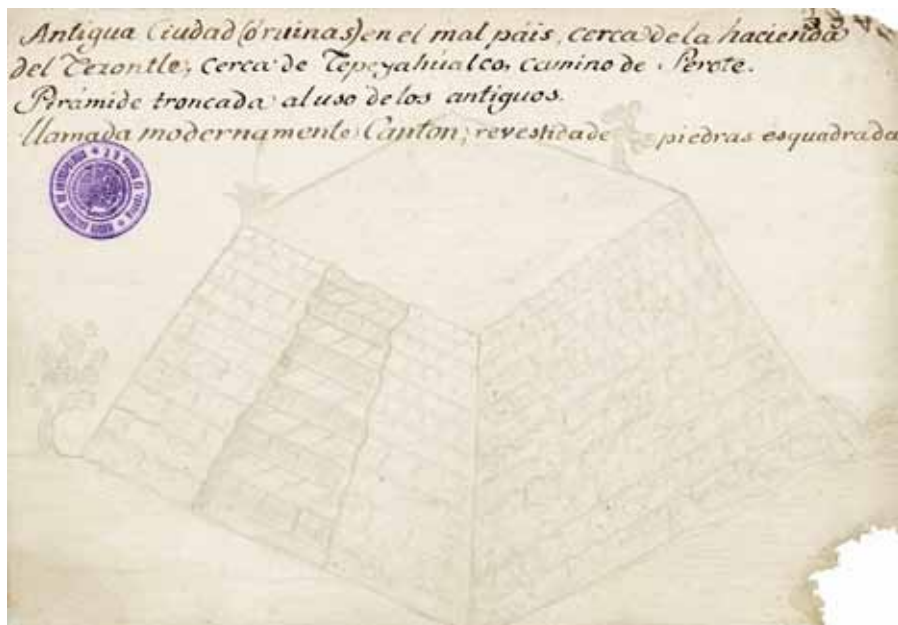 Antigua Ciudad (ó ruinas) en el mal páis, cerca de la hacienda
del Tezontle, cerca de Tepeyahualco, camino de Perote.
Pirámide troncada al uso de los antiguos.
llamada modernamente Canton; revestida de piedras esquadrada